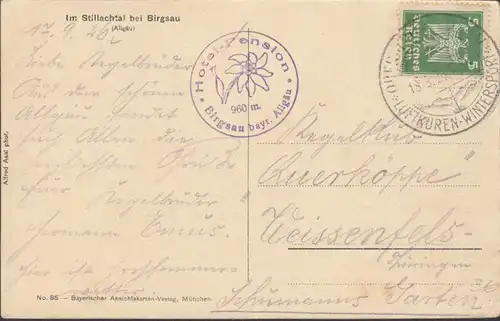 Im Stillachtal bei Birgsau
(Allgäu)
17.9.26
Liebe Kegelbrüder
Aus dem schönen
Allgäu sendet
Euch Allen die
herzlichsten Grüße
Euer Kegelbruder
Hermann
hier ist
wetter
Hotel-Pension
960 m.
Birgsau bayr. Allgäu
Deutsches Reich
5 5
LUFTKUREN-WINTERSPORT
Kegelklub
Querköppe
Weissenfels-
Thüringen
Schumanns Garten
Alfred Assal phot.
No. 85 – Bayerischer Ansichtskarten-Verlag, München.